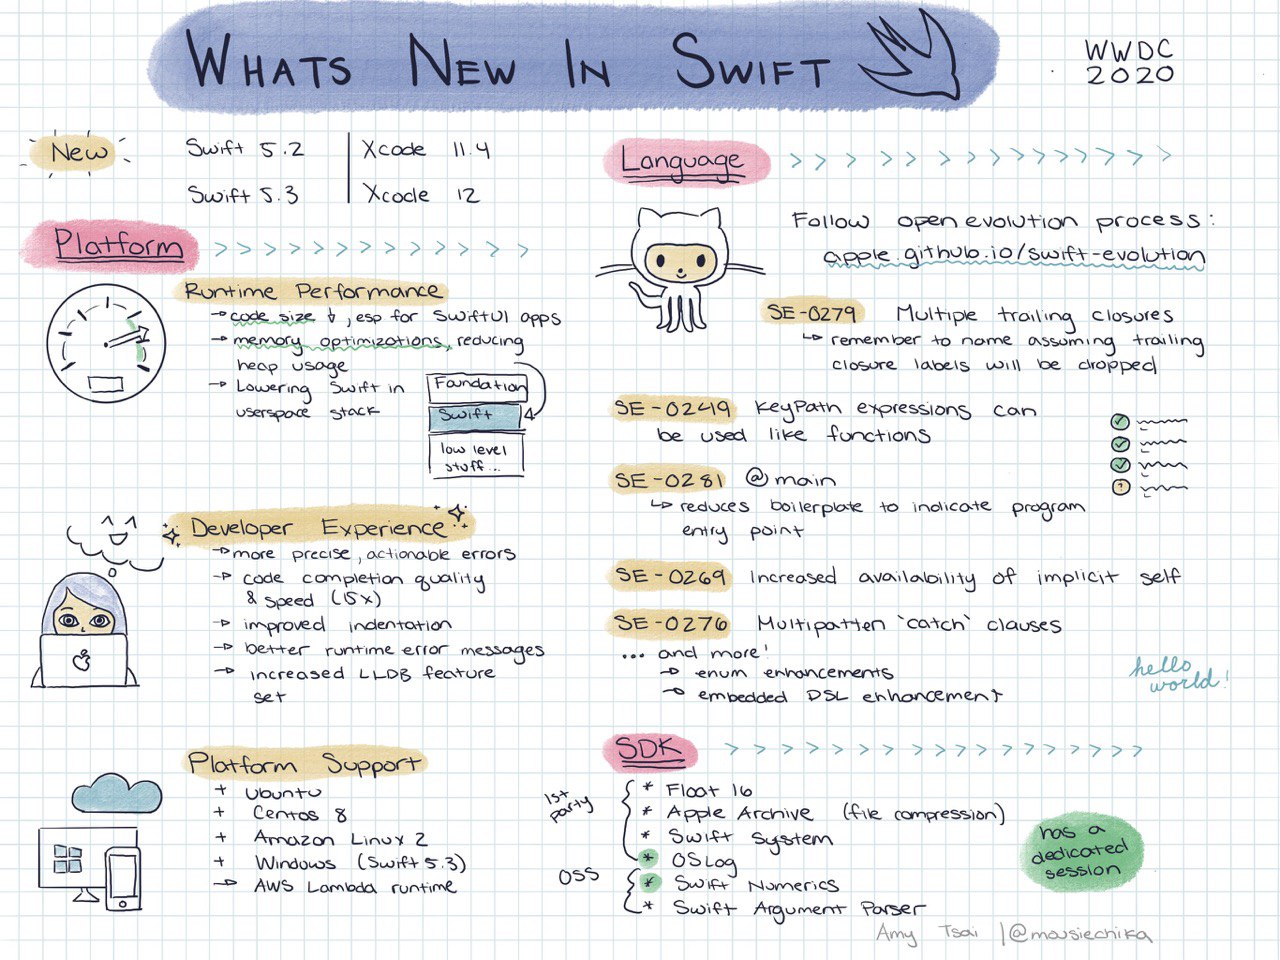 WHATS NEW IN SWIFT
WWDC
2020
New
Swift 5.2 Xcode 11.4
Swift 5.3 Xcode 12
Platform
Runtime Performance
code size ↓, esp for SwiftUI apps
memory optimizations, reducing
heap usage
Lowering Swift in
userspace stack
Foundation
Swift
low level
stuff...
Developer Experience
more precise, actionable errors
code completion quality
& speed (15x)
improved indentation
better runtime error messages
increased LLDB feature
set
Platform Support
+ Ubuntu
+ Centos 8
+ Amazon Linux 2
+ Windows (Swift 5.3)
→ AWS Lambda runtime
Language
Follow open evolution process:
apple.github.io/swift-evolution
SE-0279 Multiple trailing closures
remember to name assuming trailing
closure labels will be dropped
SE-0249 KeyPath expressions can
be used like functions
SE-0281 @main
reduces boilerplate to indicate program
entry point
SE-0269 Increased availability of implicit self
SE-0276 Multipatten 'catch' clauses
... and more!
enum enhancements
embedded DSL enhancement
hello
world!
SDK
1st
party
* Float 16
* Apple Archive (file compression)
* Swift System
* OSLog
OSS
* Swift Numerics
* Swift Argument Parser
has a
dedicated
session
Amy Tsai | @mousiechika